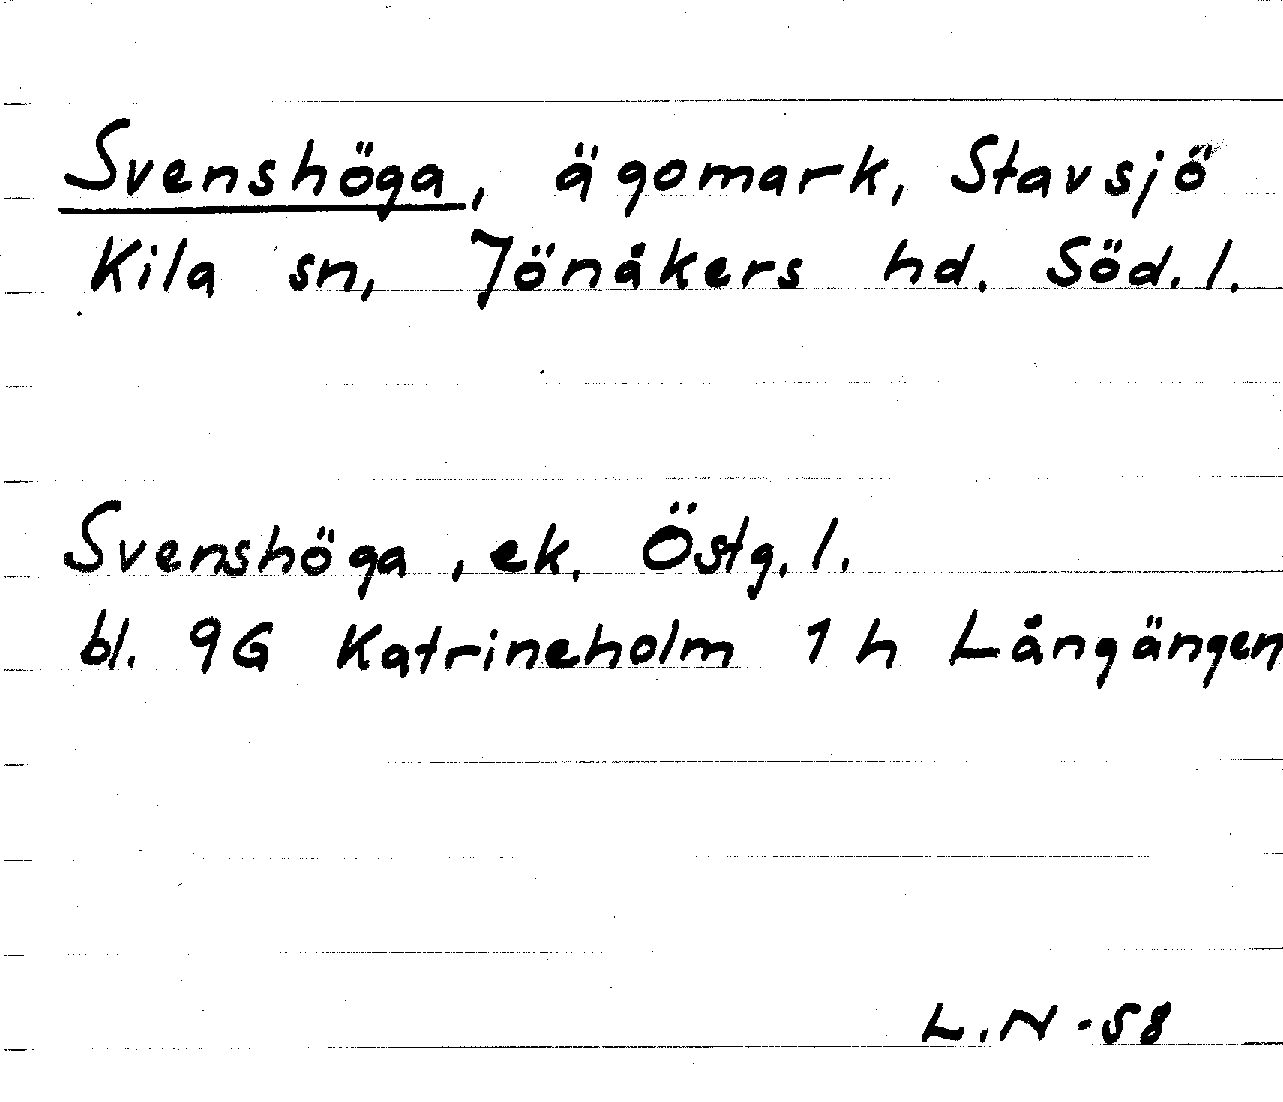 Svenshöga, ägomark, Stavsjö
Kila sn, Jönåkers hd. Söd. l.
Svenshöga, ek. Östg. l.
bl. 9G Katrineholm 1 h Långängen
L.N -58